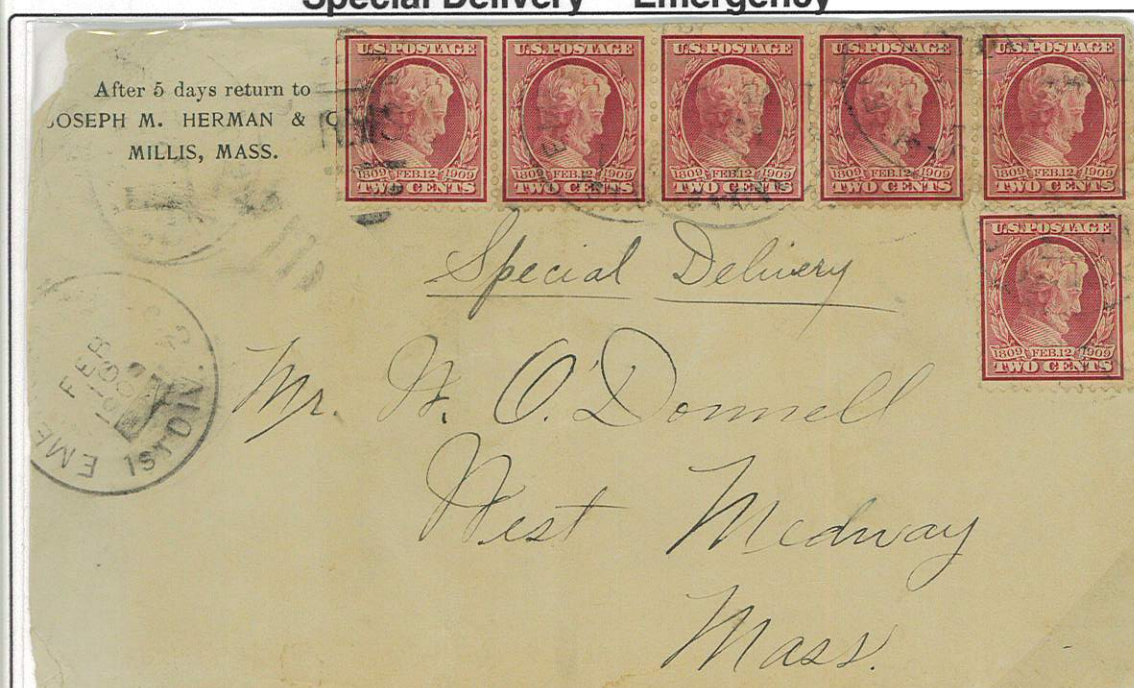 Special Delivery Emergency
After 5 days return to
JOSEPH M. HERMAN & C
MILLIS, MASS.
U.S. POSTAGE
1809 FEB. 12 1909
TWO CENTS
U.S. POSTAGE
1809 FEB. 12 1909
TWO CENTS
U.S. POSTAGE
1809 FEB. 12 1909
TWO CENTS
U.S. POSTAGE
1809 FEB. 12 1909
TWO CENTS
U.S. POSTAGE
1809 FEB. 12 1909
TWO CENTS
U.S. POSTAGE
1809 FEB. 12 1909
TWO CENTS
Special Delivery
Mr. O'Donnell
West Medway
Mass.
FEB
1ST DIV.
EME